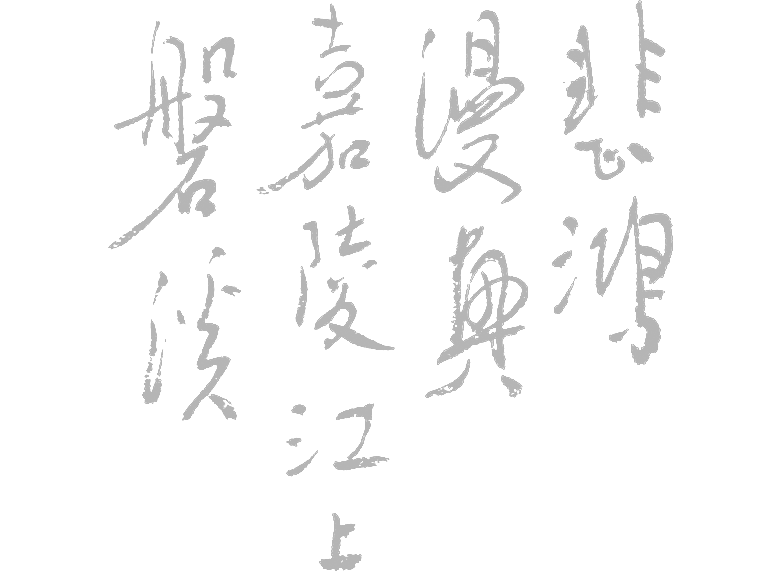 悲鴻
漫興
嘉陵江上
磐溪